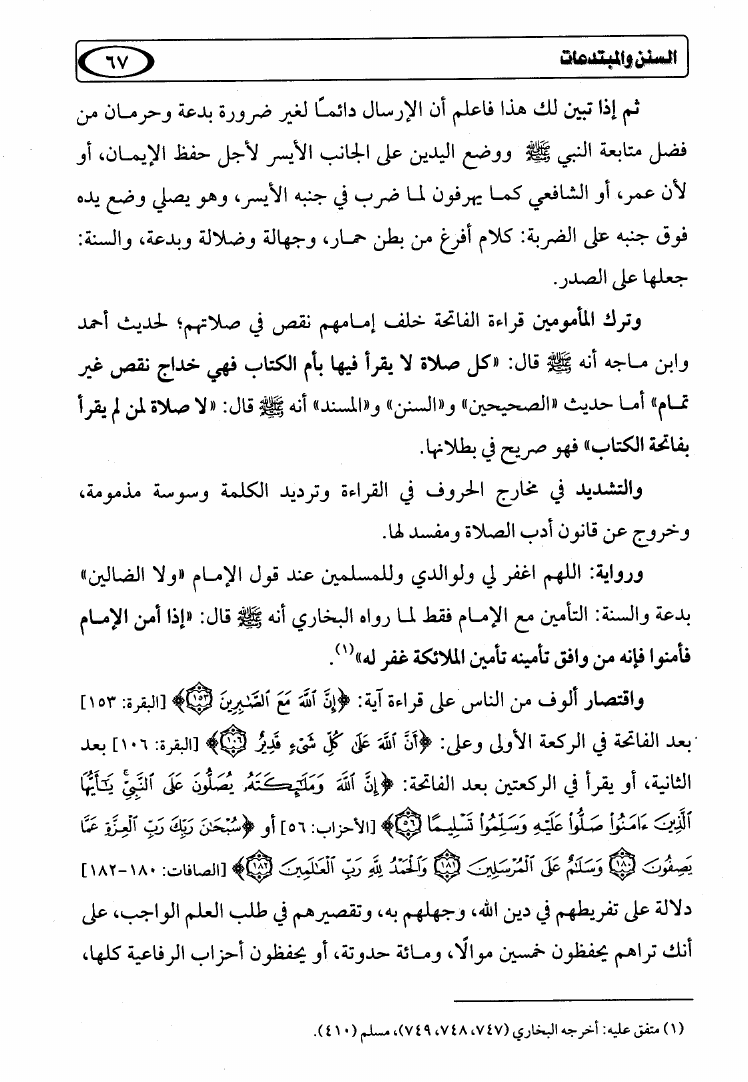 السنن والمبتدعات
٦٧
ثم إذا تبين لك هذا فاعلم أن الإرسال دائمًا لغير ضرورة بدعة وحرمان من
فضل متابعة النبي ﷺ ووضع اليدين على الجانب الأيسر لأجل حفظ الإيمان، أو
لأن عمر، أو الشافعي كما يهرفون لما ضرب في جنبه الأيسر، وهو يصلي وضع يده
فوق جنبه على الضربة: كلام أفرغ من بطن حمار، وجهالة وضلالة وبدعة، والسنة:
جعلها على الصدر.
وترك المأمومين قراءة الفاتحة خلف إمامهم نقص في صلاتهم؛ لحديث أحمد
وابن ماجه أنه ﷺ قال: «كل صلاة لا يقرأ فيها بأم الكتاب فهي خداج نقص غير
تمام» أما حديث «الصحيحين» و«السنن» و«المسند» أنه ﷺ قال: «لا صلاة لمن لم يقرأ
بفاتحة الكتاب» فهو صريح في بطلانها.
والتشديد في مخارج الحروف في القراءة وترديد الكلمة وسوسة مذمومة،
وخروج عن قانون أدب الصلاة ومفسد لها.
ورواية: اللهم اغفر لي ولوالدي وللمسلمين عند قول الإمام «ولا الضالين»
بدعة والسنة: التأمين مع الإمام فقط لما رواه البخاري أنه ﷺ قال: «إذا أمن الإمام
فأمنوا فإنه من وافق تأمينه تأمين الملائكة غفر له»(١).
واقتصار ألوف من الناس على قراءة آية: ﴿إِنَّ ٱللَّهَ مَعَ ٱلصَّٰبِرِينَ ١٥٣﴾ [البقرة: ١٥٣]
بعد الفاتحة في الركعة الأولى وعلى: ﴿أَنَّ ٱللَّهَ عَلَىٰ كُلِّ شَىْءٍ قَدِيرٌ ١٠٦﴾ [البقرة: ١٠٦] بعد
الثانية، أو يقرأ في الركعتين بعد الفاتحة: ﴿إِنَّ ٱللَّهَ وَمَلَٰٓئِكَتَهُۥ يُصَلُّونَ عَلَى ٱلنَّبِىِّ يَٰٓأَيُّهَا
ٱلَّذِينَ ءَامَنُوا۟ صَلُّوا۟ عَلَيْهِ وَسَلِّمُوا۟ تَسْلِيمًا ٥٦﴾ [الأحزاب: ٥٦] أو ﴿سُبْحَٰنَ رَبِّكَ رَبِّ ٱلْعِزَّةِ عَمَّا
يَصِفُونَ ١٨٠ وَسَلَٰمٌ عَلَى ٱلْمُرْسَلِينَ ١٨١ وَٱلْحَمْدُ لِلَّهِ رَبِّ ٱلْعَٰلَمِينَ ١٨٢﴾ [الصافات: ١٨٠-١٨٢]
دلالة على تفريطهم في دين الله، وجهلهم به، وتقصيرهم في طلب العلم الواجب، على
أنك تراهم يحفظون خمسين موالًا، ومائة حدوتة، أو يحفظون أحزاب الرفاعية كلها،
(١) متفق عليه: أخرجه البخاري (٧٤٧، ٧٤٨، ٧٤٩)، مسلم (٤١٠).